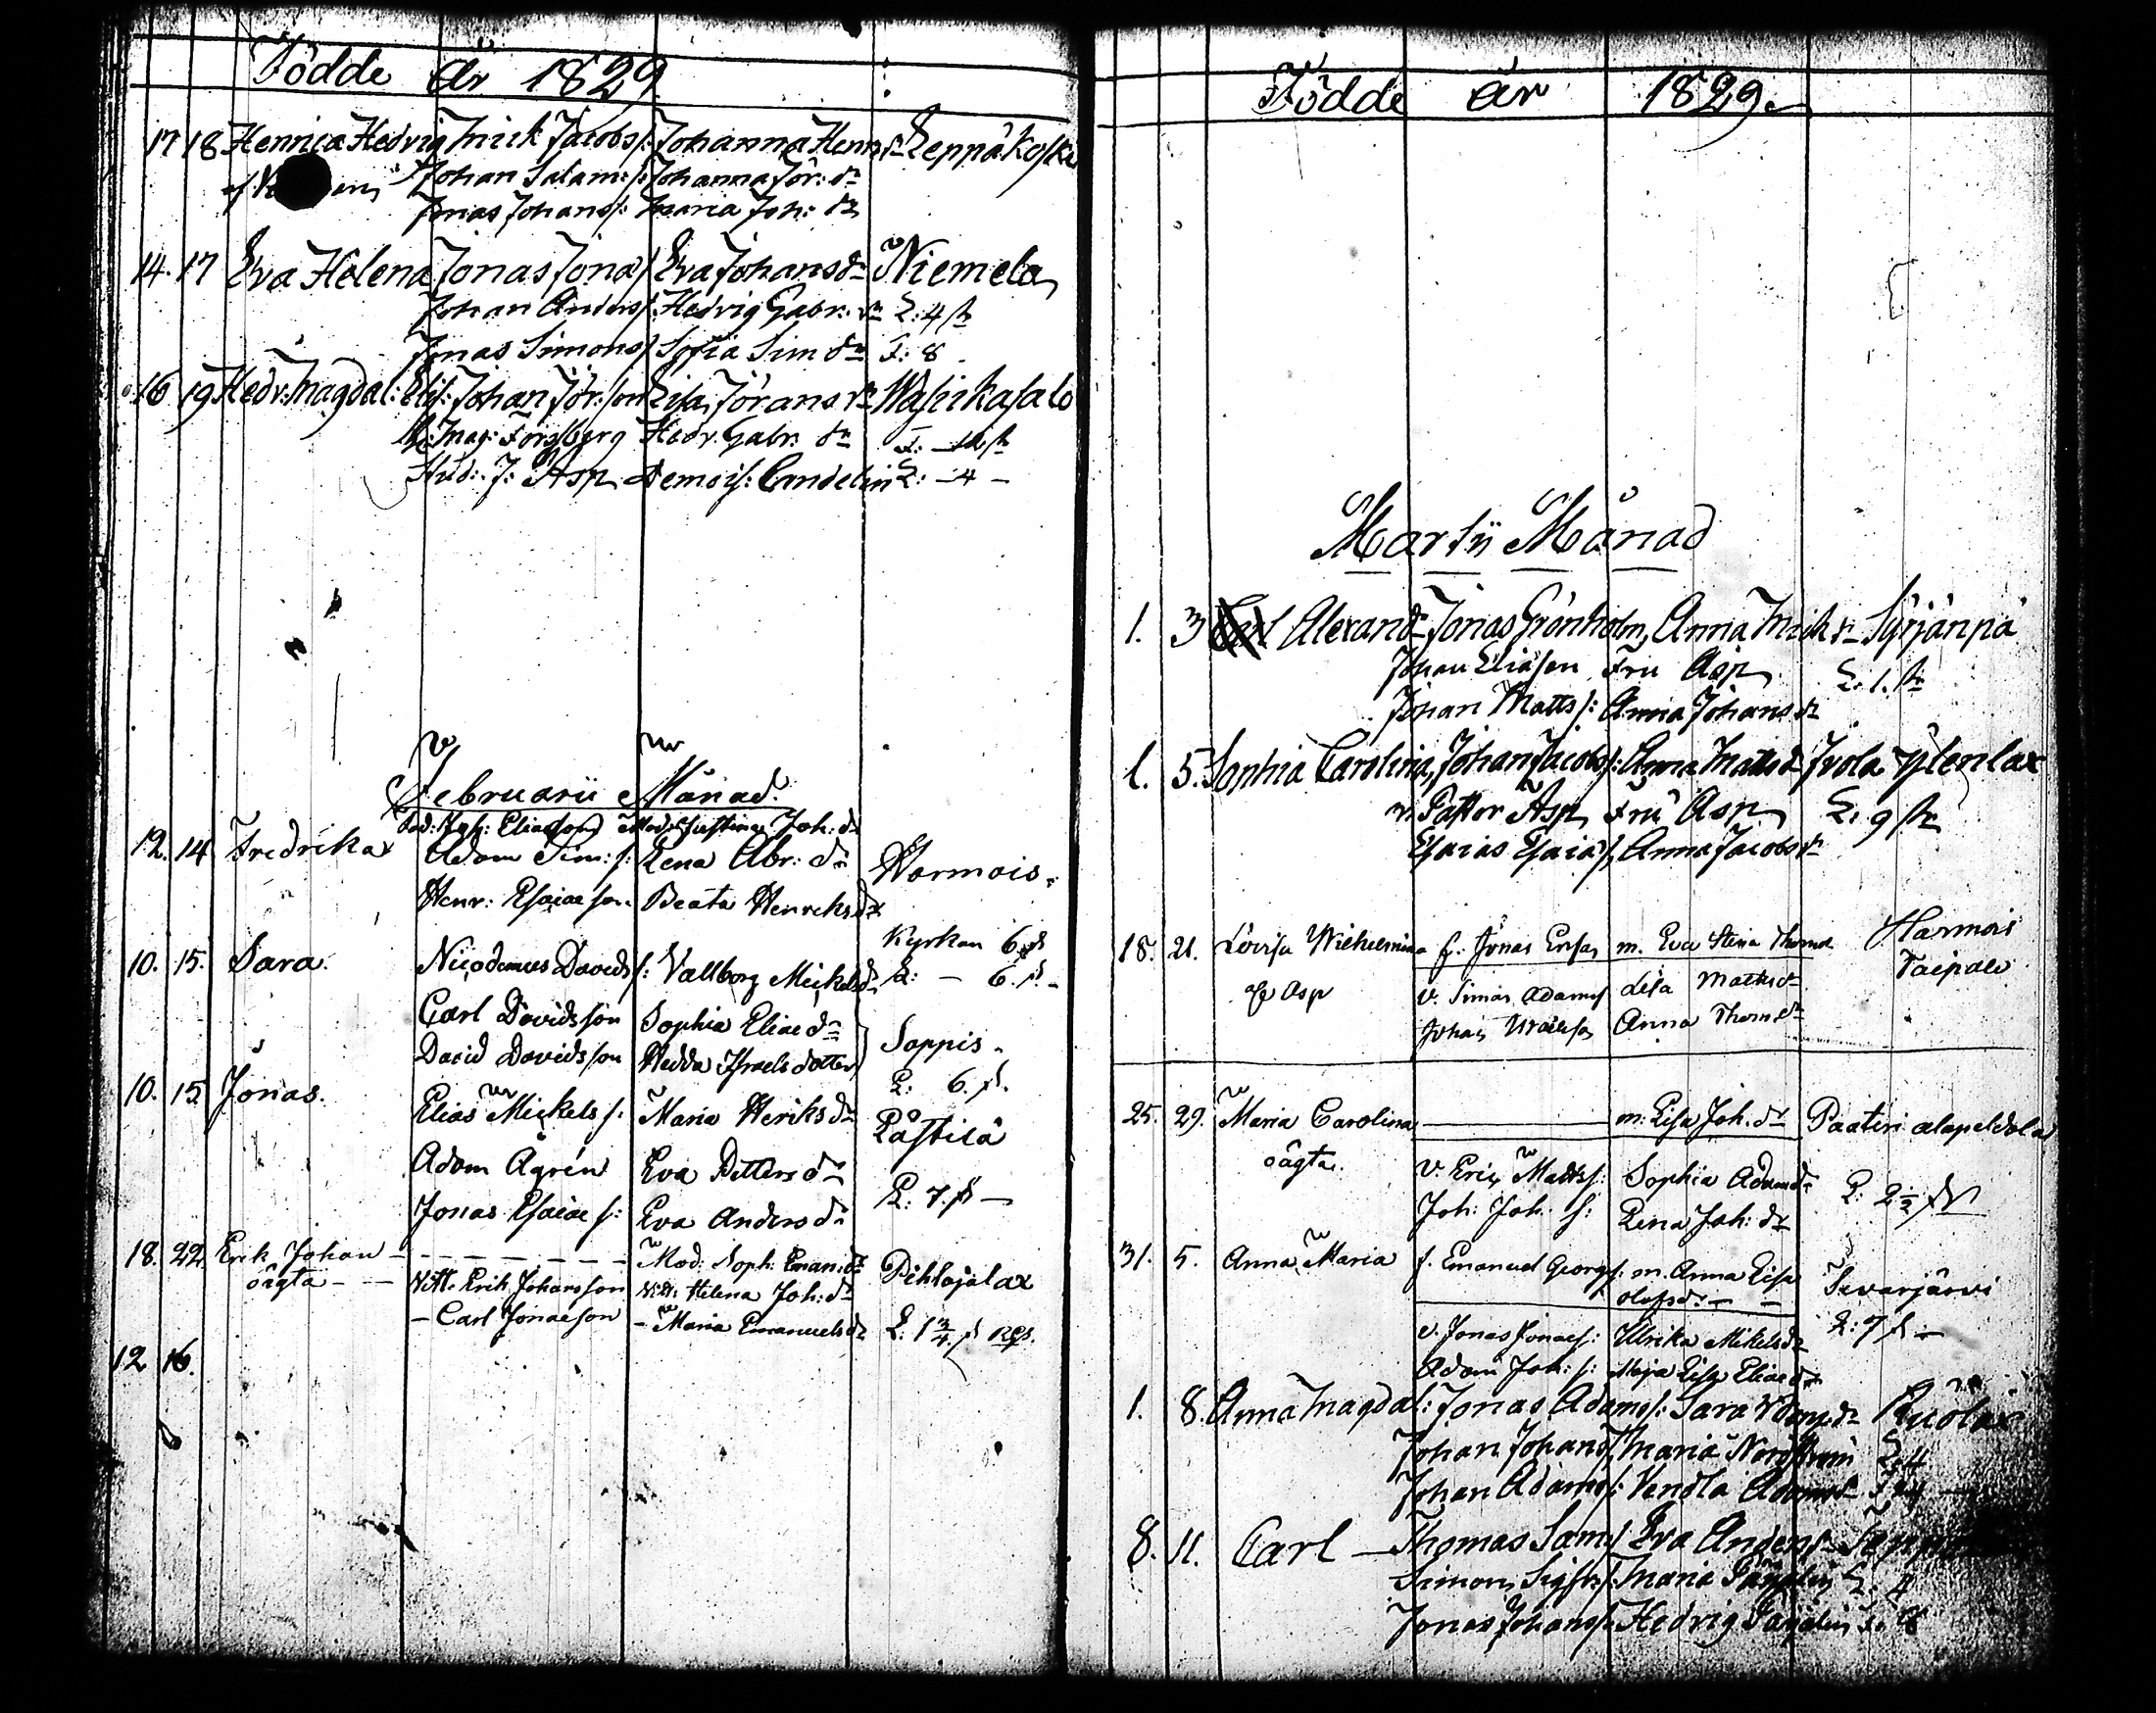 Födde år 1829
17 18 Henrica Hedvig Mick Jacobs/: Johanna Henr dr Leppäkoski
af Johan Salam:/: Johanna Jör: dr
Jonas Johans/: Maria Joh: dr
14. 17 Eva Helena Jonas Jonas/ Eva Johans dr Niemela
Johan Anders/: Hedvig Gabr: dr L: 4 st
Jonas Simons/ Sofia Sim dr F: 8
16 19 Hedv: Magdal: Elis: Johan Jör: son Lisa Jörans dr Wasikasalo
Mag: Forssberg Hedv. Gabr. dr F:
Stud: J: Asp Demois: Candelin L: 4 –
Februarii Månad.
Fad: Joh: Eliasson Mod: Justina Joh: dr
12. 14 Fredrika Adam Sim: s: Lena Abr: dr Harmois.
Henr: Esaiæ son. Beata Henriks dr
Kyrkan 6. st
10. 15. Sara. Nicodemus Davids s: Vallborg Mickels dr L: – 6. st. –
Carl Davidsson Sophia Eliæ dr
David Davidsson Hedda Israels dotter Soppis.
L: 6. st.
10. 15 Jonas. Elias Mickels s: Maria Heriks dr
Adam Ågrén Eva Petters dr L: 7. st –
Jonas Esaiæ s: Eva Anders dr
18. 22. Erik Johan – – – – – – – Mod: Soph: Eman: dr Pihlajalax
oägta – – Vitt. Erik Johansson Vitt: Helena Joh: dr
– Carl Jonæson – Maria Emanuels dr L: 1 3/4 st
12 16.
Födde år 1829.
Martii Månad
1. 3 Alexand r Jonas Grönholm, Anna Mick dr Syrjänpä
Johan Eliasson Fru Asp L. 1. st
Johan Matts/: Anna Johans dr
1. 5. Sophia Carolina Johan Jacobs/: Anna Matts dr Isola Ylenlax
v. Pastor Asp Fru Asp L. 9 st
Esaias Esaias/ Anna Jacobs dr
18. 21. Lovisa Wilhelmina f: Jonas Ersson m. Eva Stina Thoms dr Harmois
af Asp v. Simon Adams s Lisa Matts dr Taipale
Johan Anna Thoms dr
25. 29. Maria Carolina ——— m: Lisa Joh. dr Paateri alapeldola
oägta. v. Eric Matts s: Sophia Adams dr L: 2 1/2 st
Joh: Joh: s: Lena Joh: dr
31. 5. Anna Maria f. Emanuel Georg s: m. Anna Lisa Sivarjärvi
Olofs dr – –
v. Jonas Jonæ s: Ulrika Mikels dr L: 7 st –
Adam Joh: s: Maja Lisa Eliæ dr
1. 8. Anna Magdal: Jonas Adams/: Sara Adams dr Ruolax
Johan Johans/ Maria Nordström L. 4
Johan Adams/: Vendla Adams dr
8. 11. Carl — Thomas Sam/ Eva Anders dr
Simon Sigfr/: Maria L: 4
Jonas Johans/: Hedvig F: 8